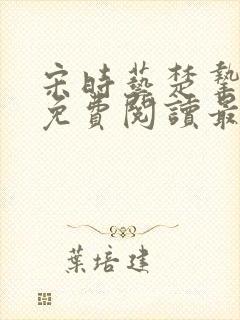 宋時藝楚墊
免費閱讀最
葉培建